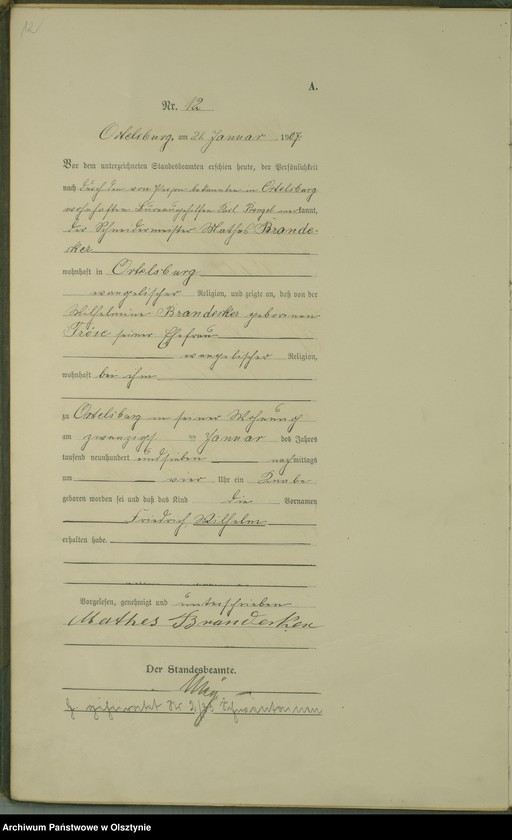 12
A.
Nr. 12
Ortelsburg, am 21. Januar 1907.
Vor dem unterzeichneten Standesbeamten erschien heute, der Persönlichkeit
nach durch den von Person bekannten in Ortelsburg
wohnhaften Bureaugehilfen Carl kannt,
der Schneidermeister Mathes Brande-
rker
wohnhaft in Ortelsburg
evangelischer Religion, und zeigte an, daß von der
Wilhelmine Branderker geborenen
seiner Ehefrau
evangelischer Religion,
wohnhaft bei ihm
zu Ortelsburg in seiner Wohnung
am zwanzigsten Januar des Jahres
tausend neunhundert und sieben nachmittags
um vier Uhr ein Knabe
geboren worden sei und daß das Kind die Vornamen
Friedrich Wilhelm
erhalten habe.
Vorgelesen, genehmigt und unterschrieben
Mathes Branderker
Der Standesbeamte.
Archiwum Państwowe w Olsztynie